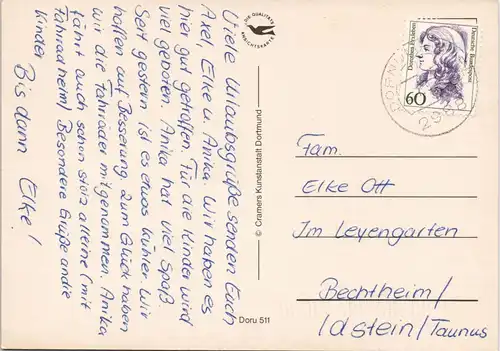 Viele Urlaubsgrüße senden Euch
Axel, Elke u. Anika. Wir haben es
hier gut getroffen. Für die Kinder wird
viel geboten. Anika hat viel Spaß.
Seit gestern ist es etwas kühler. Wir
hoffen auf Besserung. Zum Glück haben
wir die Fahrräder mitgenommen. Anika
fährt auch schon stolz alleine (mit
Fahrradhelm). Besondere Grüße an die
Kinder.
Bis dann Elke!
DIE QUALITÄTS
ANSICHTSKARTE
© Cramers Kunstanstalt Dortmund
Doru 511
Dorothea Erxleben
Deutsche Bundespost
60
DORNUM
Fam.
Elke Ott
Im Leyengarten
Bechtheim/
Idstein/Taunus